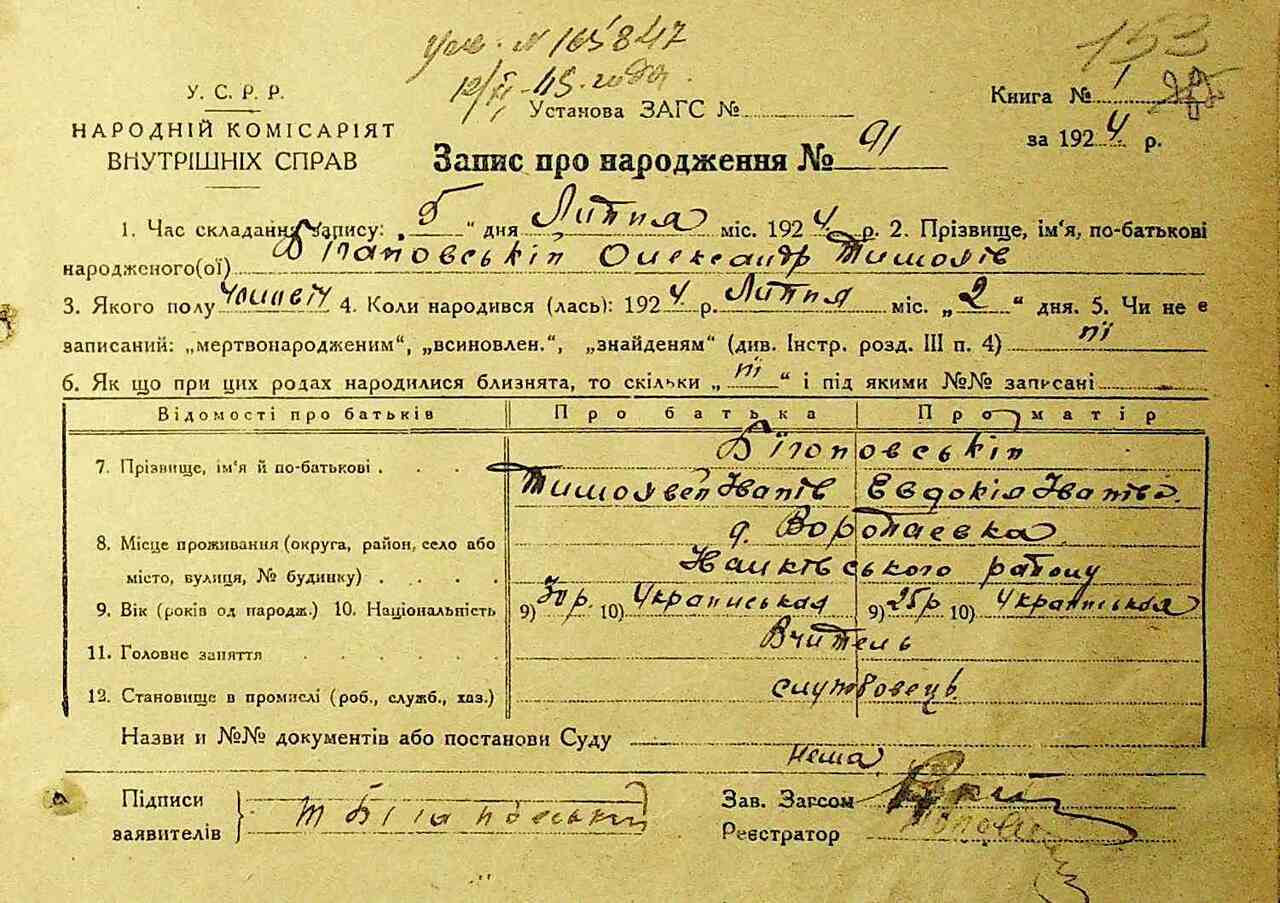 № 165847
12/VI-45. года.
153
У. С. Р. Р.
НАРОДНІЙ КОМІСАРІЯТ
ВНУТРІШНІХ СПРАВ
Установа ЗАГС №
Книга № 1
за 1924 р.
Запис про народження № 91
1. Час складання запису: „ 5 “ дня Липня міс. 1924 р. 2. Прізвище, ім'я, по-батькові
народженого(ої) Білановський Олександр
3. Якого полу чоловіч 4. Коли народився (лась): 1924 р. Липня міс. „ 2 “ дня. 5. Чи не є
записаний: „мертвонародженим“, „всиновлен.“, „знайденям“ (див. Інстр. розд. III п. 4) ні
6. Як що при цих родах народилися близнята, то скільки „ ні “ і під якими №№ записані
Відомості про батьків Про батька Про матір
7. Прізвище, ім'я й по-батькові Білоновський
Тимофей Іванів Евдокія Іванівн.
8. Місце проживання (округа, район, село або д. Воропаевка
місто, вулиця, № будинку) району
9. Вік (років од народж.) 10. Національність 9) 30 р. 10) Украинськая 9) 25 р 10) Украинськая
11. Головне заняття Вчитель
12. Становище в промислі (роб., служб., хаз.) службовець
Назви и №№ документів або постанови Суду
нема
Підписи
заявителів Т Білановський
Зав. Загсом
Реєстратор